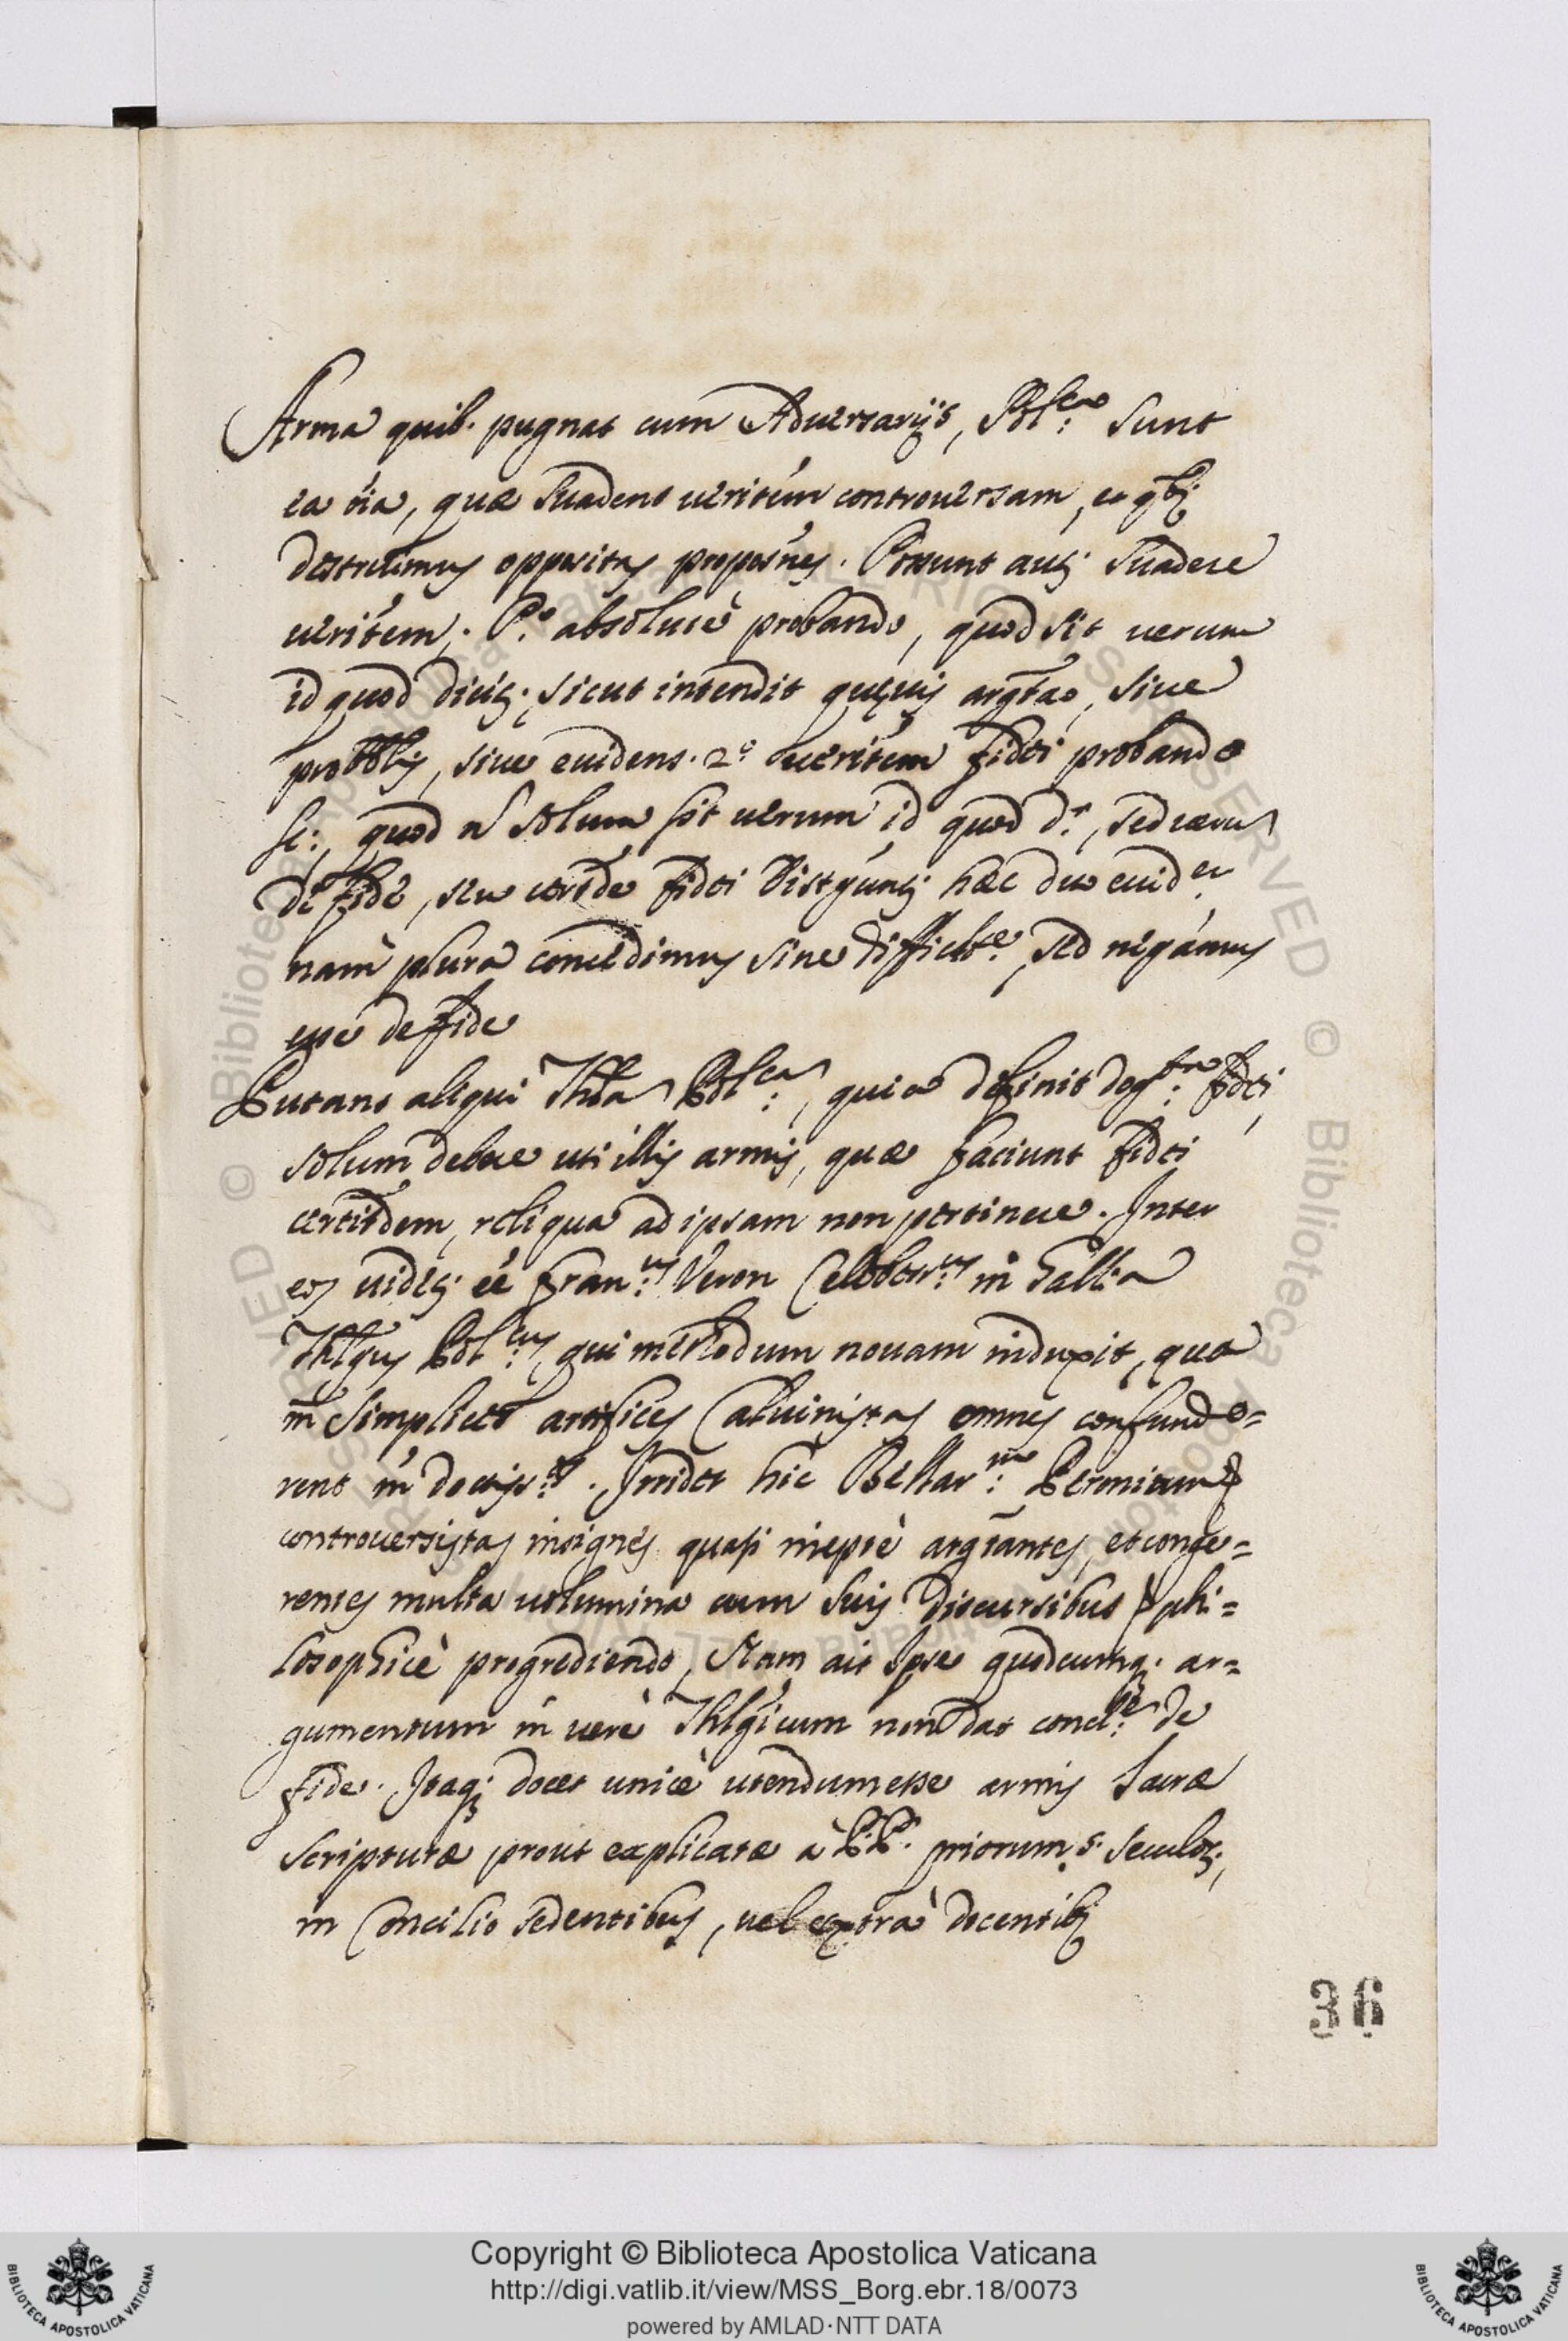 Arma quib. pugnat cum Adversarijs, Pol:ca Sunt
ea õia, quæ Suadent ueritém controuersam, et qbȷ
destruimus oppositas proposñes. Possunt autȷ Suadere
ueritém. P.o absolutè probando, quod sit uerum
id quod dicitȷ, sicut intendit quiuis argtão, siue
probblis, siue euidens. 2.o ueritém fidei probando
sc:, quod ñ Solum sit uerum id quod dr, sed
de fide, seu fidei distgúntȷ hæc duo euid:er
nam plura concedimus sine difficlt:e, sed negámus
esse de fide
Putant aliqui Thlã Pol:ca, quia definit dog:ta fidei,
Solum debere uti illis armis, quæ faciunt fidei
certitdem, reliqua ad ipsam non pertinere. Inter
eos uidetȷ eé Fran:us Veron Celeberr:us in Gallia
Thlgus Pol:cus, qui methodum nouam induxit, qua
simplices artifices Caluinistas omnes confunde=
rent doctiss:. Irridet hic Bellar:m Peronium
controuersistas insignes quasi ineptè argtantes, et conge=
rentes multa uolumina cum Suis Discursibus phi=
losophicè progrediendo, Nam ait Ipse quodcumqȷ ar=
gumentum ni uerè Thlgicum non dat concl:e de
fide. Itaqȷ docet unicè utendum esse armis Sacræ
Scripturæ prout explicatæ à P.P. priorum 5. Seculorȷ,
in Concilio Sedentibus, uel extrà docentibȷ
36
© Biblioteca Apostolica Vaticana ALL RIGHTS RESERVED
Copyright © Biblioteca Apostolica Vaticana
http://digi.vatlib.it/view/MSS_Borg.ebr.18/0073
powered by AMLAD·NTT DATA
BIBLIOTECA APOSTOLICA VATICANA
BIBLIOTECA APOSTOLICA VATICANA